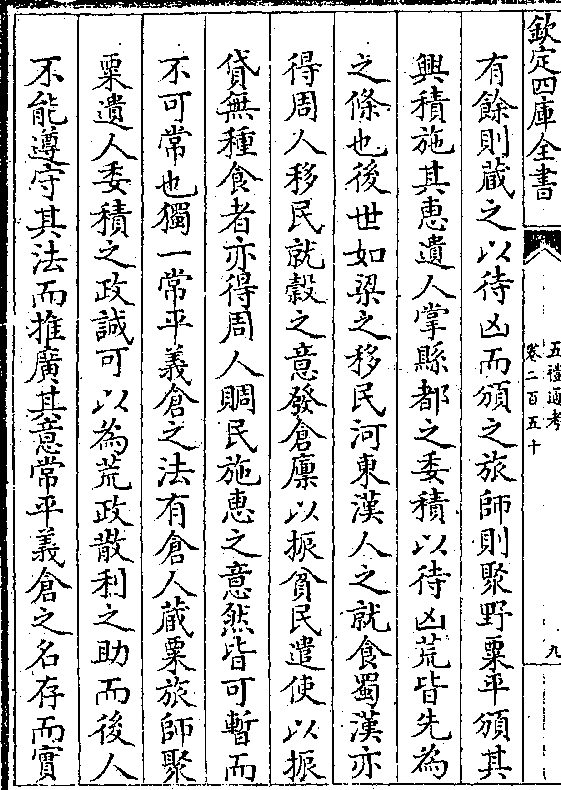 欽定四庫全書
五禮通考
卷二百五十
九
有餘則藏之以待凶而頒之旅師則聚野粟平頒其
興積施其惠遺人掌縣都之委積以待凶荒皆先為
之條也後世如梁之移民河東漢人之就食蜀漢亦
得周人移民就穀之意發倉廪以振貧民遣使以振
貸無種食者亦得周人賙民施惠之意然皆可暫而
不可常也獨一常平義倉之法有倉人藏粟旅師聚
粟遺人委積之政誠可以為荒政散利之助而後人
不能遵守其法而推廣其意常平義倉之名存而實